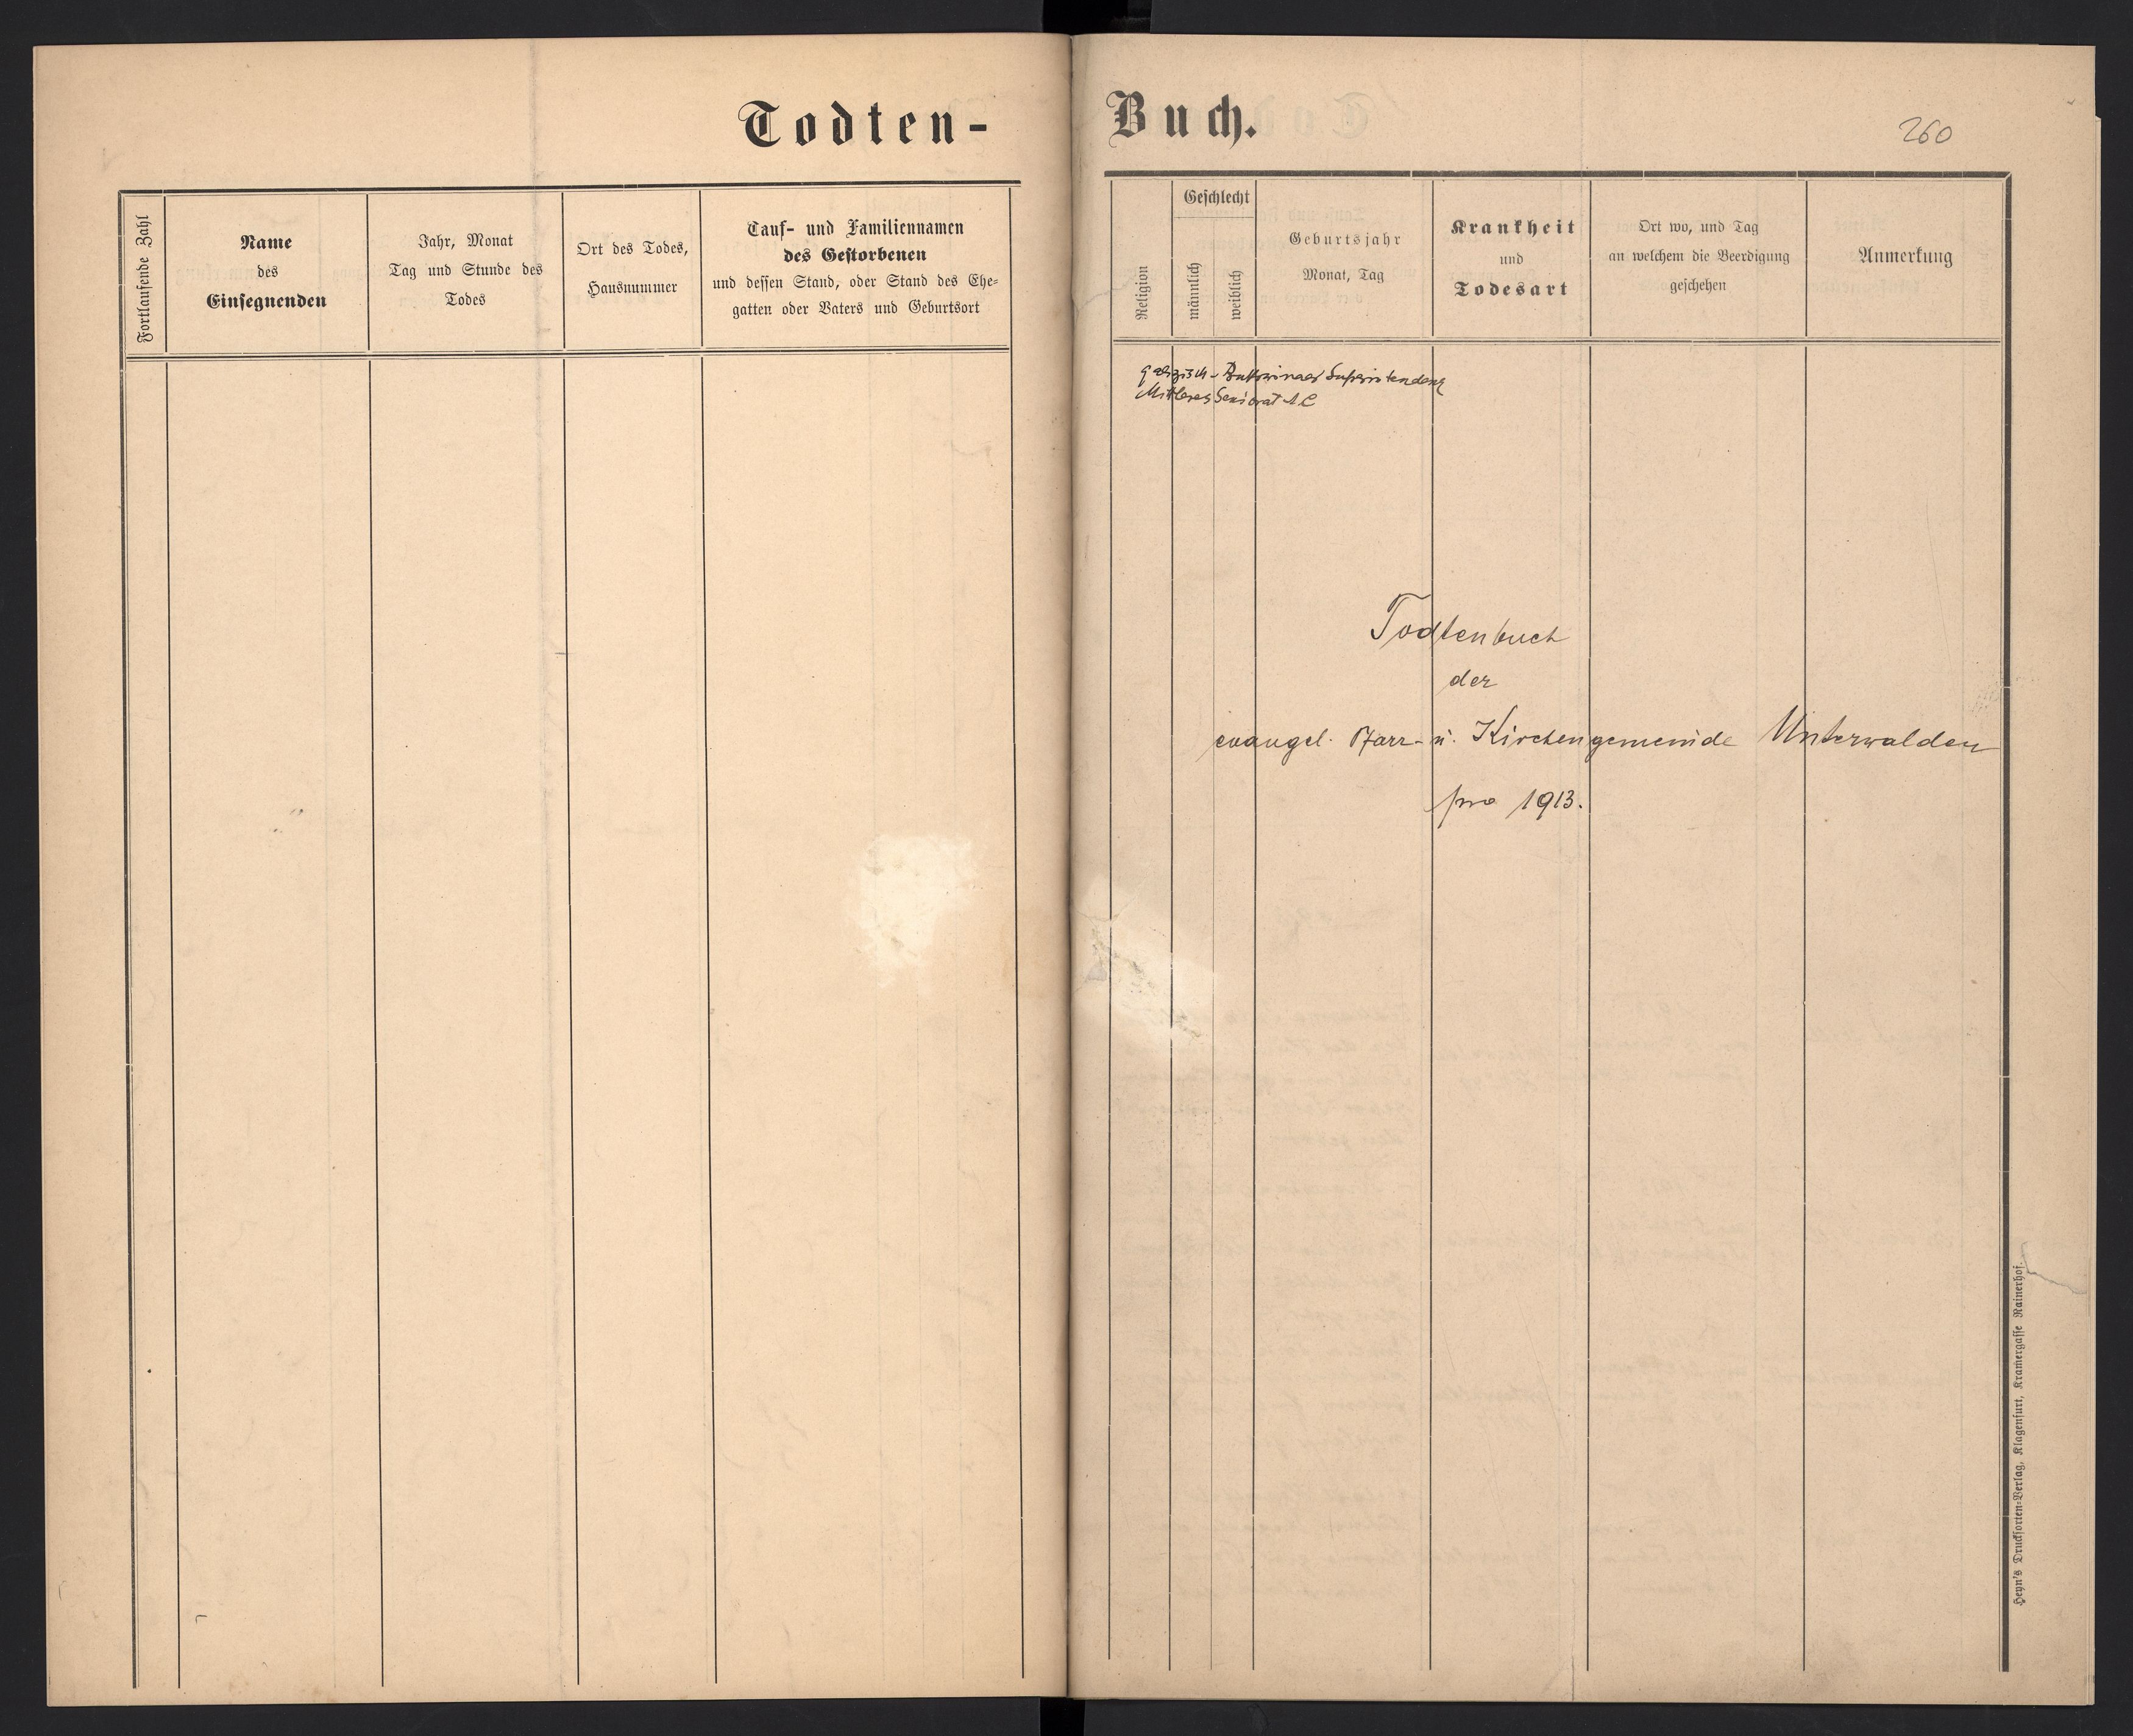 Todten-
Fortlaufende Zahl
Name
des
Einsegnenden
Jahr, Monat
Tag und Stunde des
Todes
Ort des Todes,
Hausnummer
Tauf- und Familiennamen
des Gestorbenen
und dessen Stand, oder Stand des Ehe-
gatten oder Vaters und Geburtsort
Buch.
260
Religion
Geschlecht
männlich
weiblich
Geburtsjahr
Monat, Tag
Krankheit
und
Todesart
Ort wo, und Tag
an welchem die Beerdigung
geschehen
Anmerkung
galizisch-Bukowinaer Superintendenz
Mittleres Seniorat AC
Todtenbuch
der
evangel. Pfarr- u. Kirchengemeinde Unterwalden
pro 1913.
Heyn's Drucksorten-Verlag, Klagenfurt, Kramergasse Rainerhof.